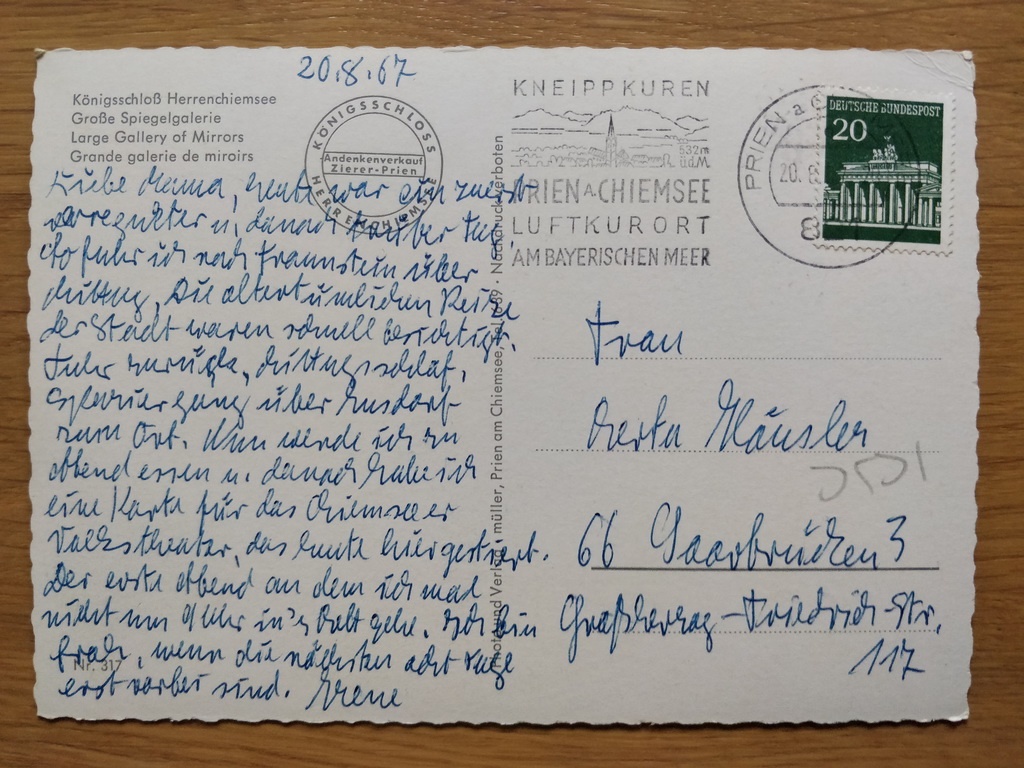 20.8.67
Königsschloß Herrenchiemsee
Große Spiegelgalerie
Large Gallery of Mirrors
Grande galerie de miroirs
KÖNIGSSCHLOSS
Andenkenverkauf
Zierer-Prien
HERRENCHIEMSEE
Liebe Mama, heute war ein zuerst
verregneter u. danach trüber Tag,
so fuhr ich nach Traunstein über
Die altertümlichen Reize
der Stadt waren schnell besichtigt.
Fuhr zurück,
Spaziergang über
zum Ort. Nun werde ich zu
Abend essen u. danach habe ich
eine Karte für das Chiemseer
Volkstheater, das heute hier gastiert.
Der erste Abend an dem ich mal
nicht um 9 Uhr in's Bett gehe. Ich bin
froh, wenn die nächsten acht Tage
erst vorbei sind. Irene
Nr. 317
müller, Prien am Chiemsee, Tel. 689 · Nachdruck verboten
KNEIPPKUREN
532m
ü.d.M.
PRIEN A. CHIEMSEE
LUFTKURORT
AM BAYERISCHEN MEER
PRIEN a C
20.8
8
DEUTSCHE BUNDESPOST
20
Frau
Herta Häusler
66 Saarbrücken 3
Großherzog-Friedrich-Str.
117